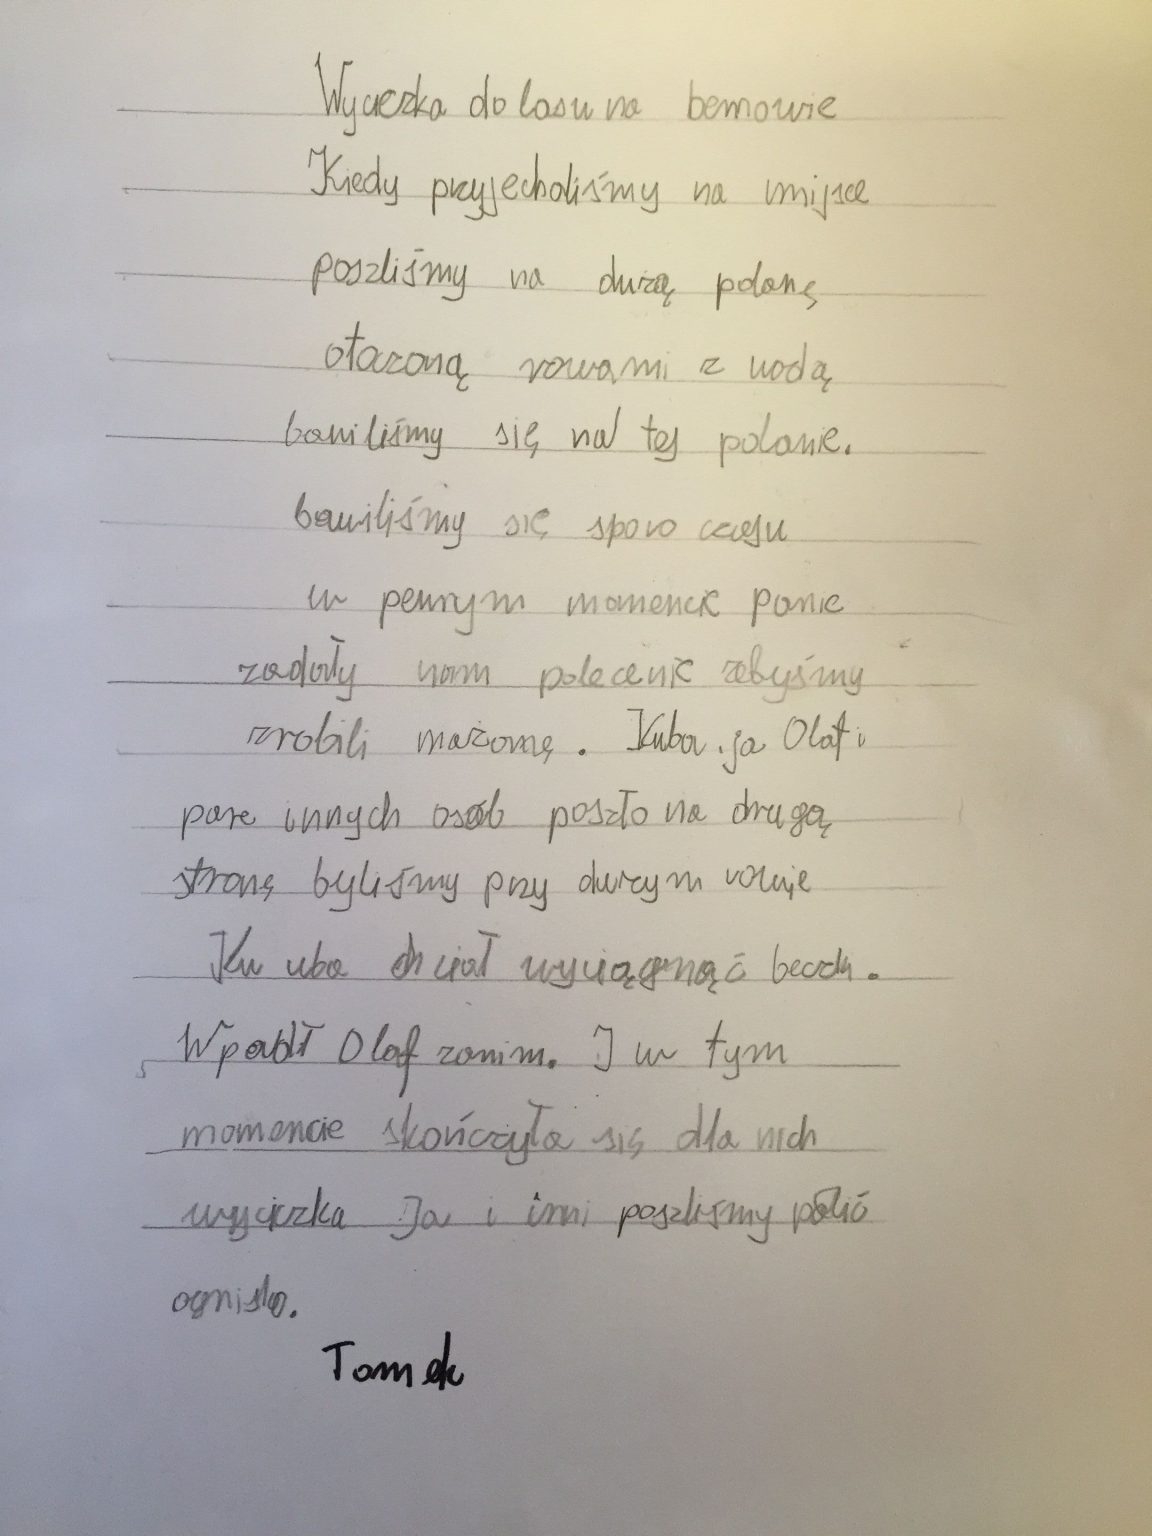 Wycieczka do lasu na bemowie
Kiedy przyjechaliśmy na miejsce
poszliśmy na dużą polanę
otoczoną rowami z wodą
bawiliśmy się na tej polanie.
bawiliśmy się sporo czasu
w pewnym momencie panie
zadały nam polecenie żebyśmy
zrobili marzannę. Kuba, ja Olaf i
pare innych osób poszło na drugą
stronę byliśmy przy dużym rowie
Ku uba chciał wyciągnąć
Wpadł Olaf zanim. I w tym
momencie skończyła się dla nich
wycieczka Ja i inni poszliśmy palić
ognisko.
Tomek